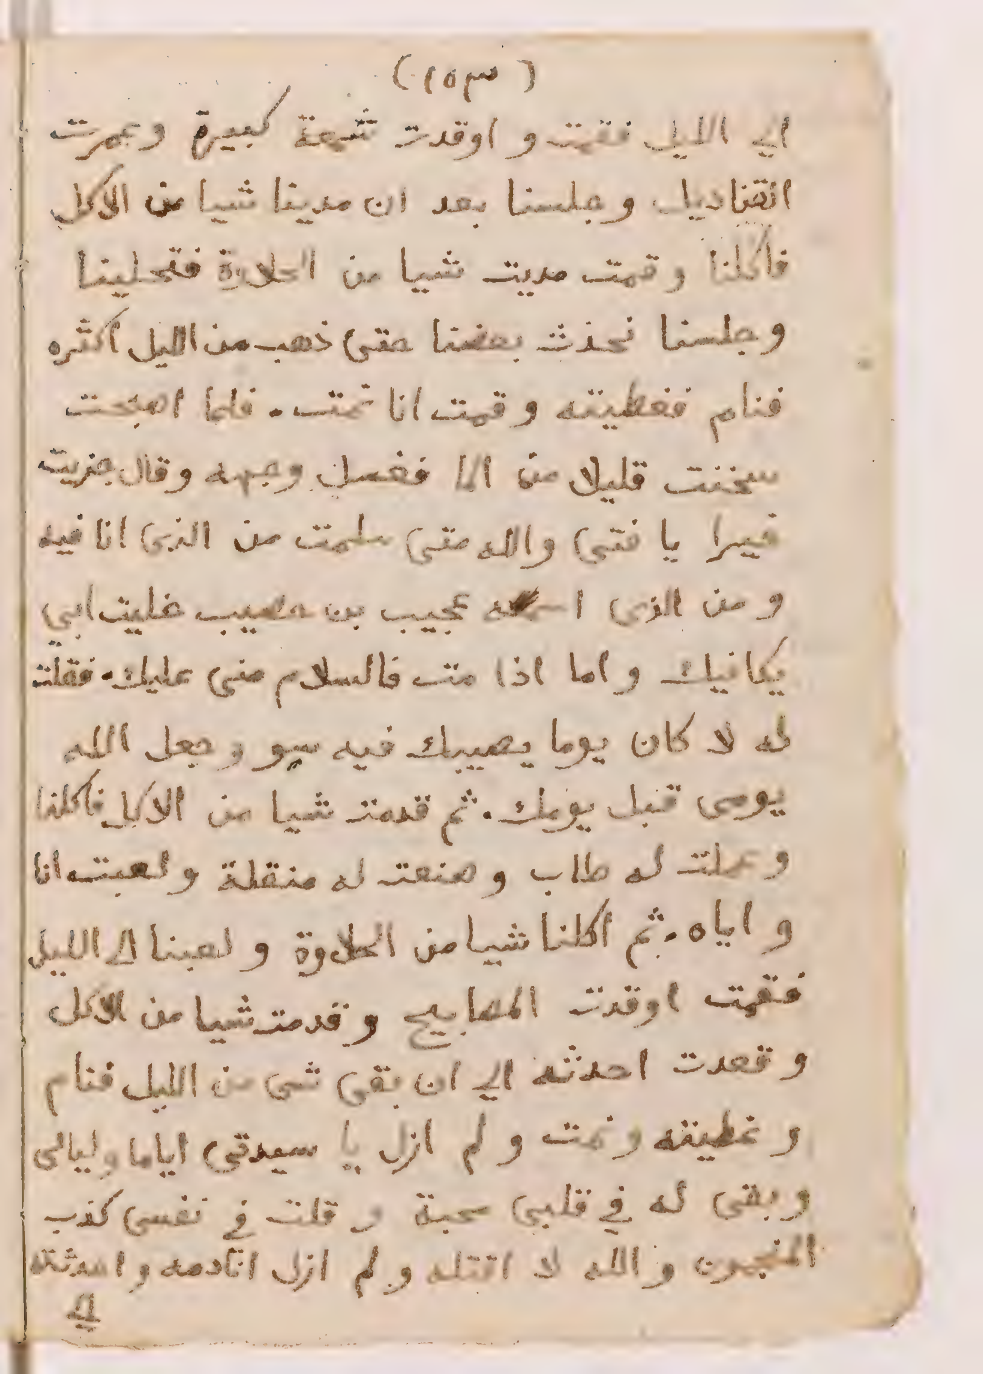 (١٥٣)
الي الليل فقمت و اوقدت شمعة كبيرة وعمرت
القناديل وجلسنا بعد ان مدينا شيا من الاكل
فاكلنا وقمت مديت شيا من الحلاوة فتحلينا
وجلسنا نحدث بعضنا حتى ذهب من الليل اكثره
فنام فغطيته وقمت انا نمت. فلما اصبحت
سخنت قليلا من الما فغسل وجهه وقال جزيت
خيرا يا فتى والله متى سلمت من الذى انا فيه
ومن الذى اسمه عجيب بن خصيب خليت ابي
يكافيك واما اذا مت فالسلام منى عليك. فقلت
له لا كان يوما يصيبك فيه سو وجعل الله
يومى قبل يومك. ثم قدمت شيا من الاكل فاكلنا
وعملت له طاب وصنعت له منقلة ولعبت انا
واياه. ثم اكلنا شيا من الحلاوة ولعبنا الى الليل
فقمت اوقدت المصابيح وقدمت شيا من الاكل
وقعدت احدثه الي ان بقى شى من الليل فنام
وغطيته ونمت ولم ازل يا سيدتى اياما وليالى
وبقى له في قلبى محبة وقلت في نفسى كذب
المنجمون والله لا اقتله ولم ازل انادمه واحدثه
الى